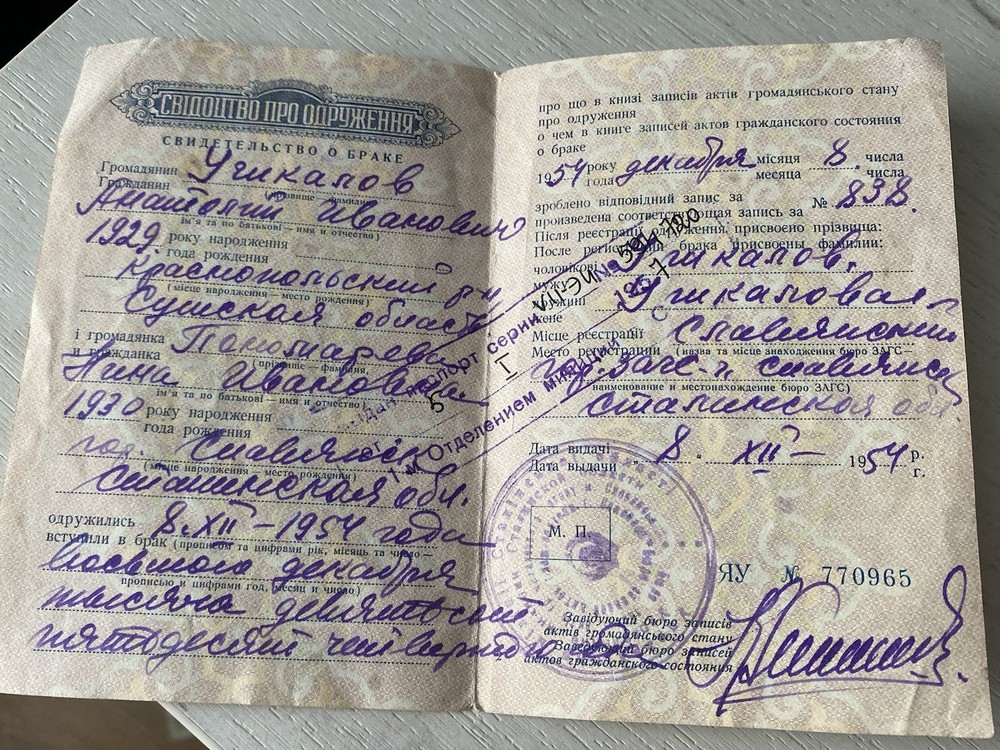 СВІДОЦТВО ПРО ОДРУЖЕННЯ
СВИДЕТЕЛЬСТВО О БРАКЕ
Громадянин Учкалов
Гражданин (прізвище — фамилия)
Анатолий Иванович
ім'я та по батькові — имя и отчество)
1929 року народження
года рождения
Краснопольский р-н
(місце народження — место рождения)
Сумской области
і громадянка
и гражданка (прізвище — фамилия,
Нина Ивановна
ім'я та по батькові — имя и отчество)
1930 року народження
года рождения
гор. Славянск
(місце народження — место рождения)
Сталинская обл.
одружились 8. XII – 1954 года
вступили в брак (прописом та цифрами рік, місяць та число —
восьмого декабря
прописью и цифрами год, месяц и число)
тысяча девятьсот
пятьдесят четвертого
про що в книзі записів актів громадянського стану
про одруження
о чем в книге записей актов гражданского состояния
о браке
1954 року декабря місяця 8. числа
года месяца числа
зроблено відповідний запис за
произведена соответствующая запись за № 838.
Після реєстрації одруження, присвоєно прізвища:
После регистрации брака присвоены фамилии:
чоловікові Учкалов.
мужу
дружині Учкаловая
жене
Місце реєстрації Славянский
Место регистрации (назва та місце знаходження бюро ЗАГС—
гор. ЗАГС г. Славянск
наименование и местонахождение бюро ЗАГС)
Сталинской обл.
Дата видачі 8. XII – 1954 р.
Дата выдачи г.
М. П.
ЯУ № 770965
Завідуючий бюро записів
актів громадянського стану
Заведующий бюро записей
актов гражданского состояния
паспорт серии VII-ЭИ № 591780
Отделением милиции